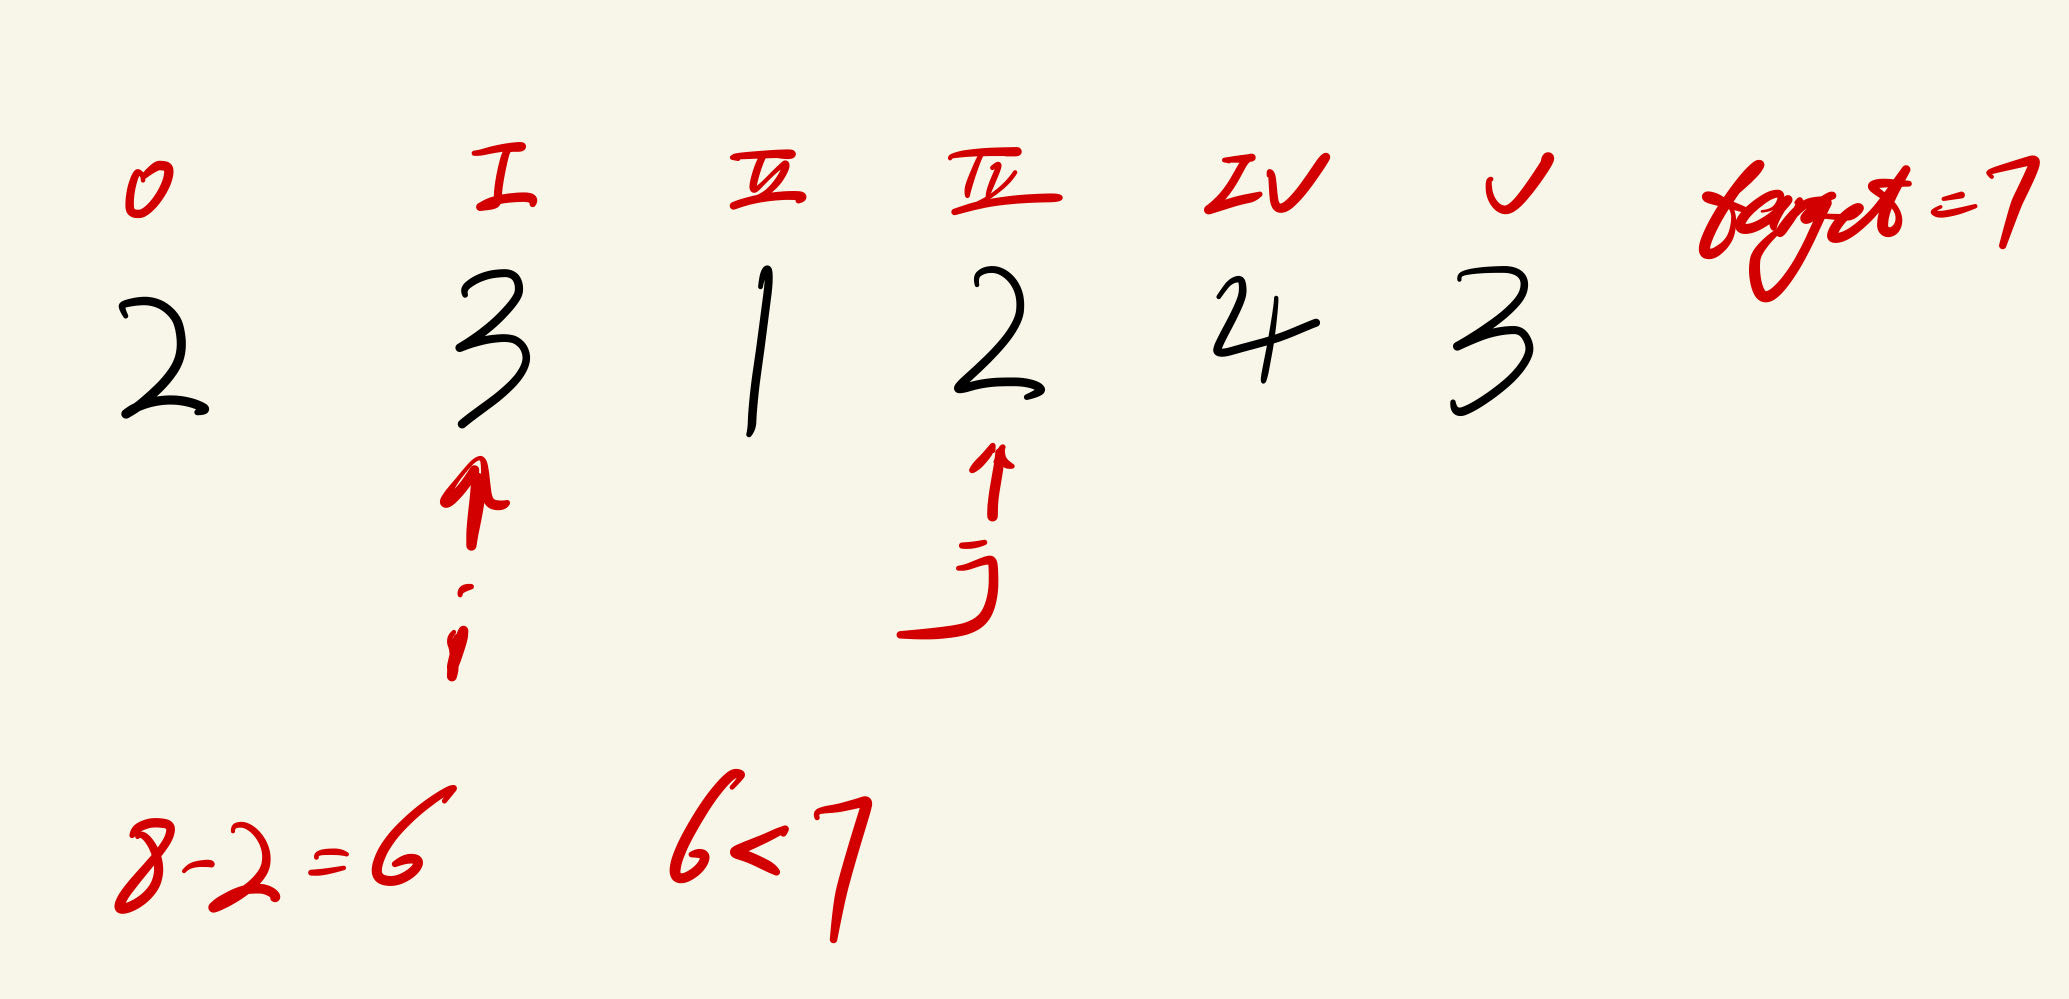 0 I II III IV V target=7
2 3 1 2 4 3
i j
8-2=6 6<7